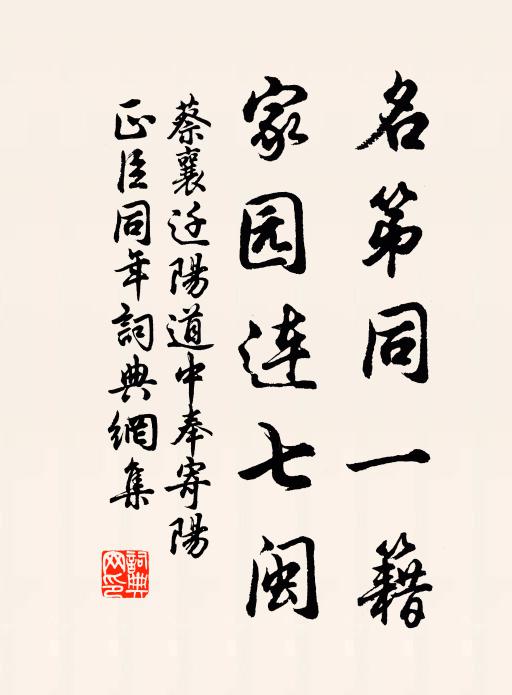 名第同一籍
家园连七闽
蔡襄迁陽道中奉寄陽
正臣同年詞典網集
詞典
网印